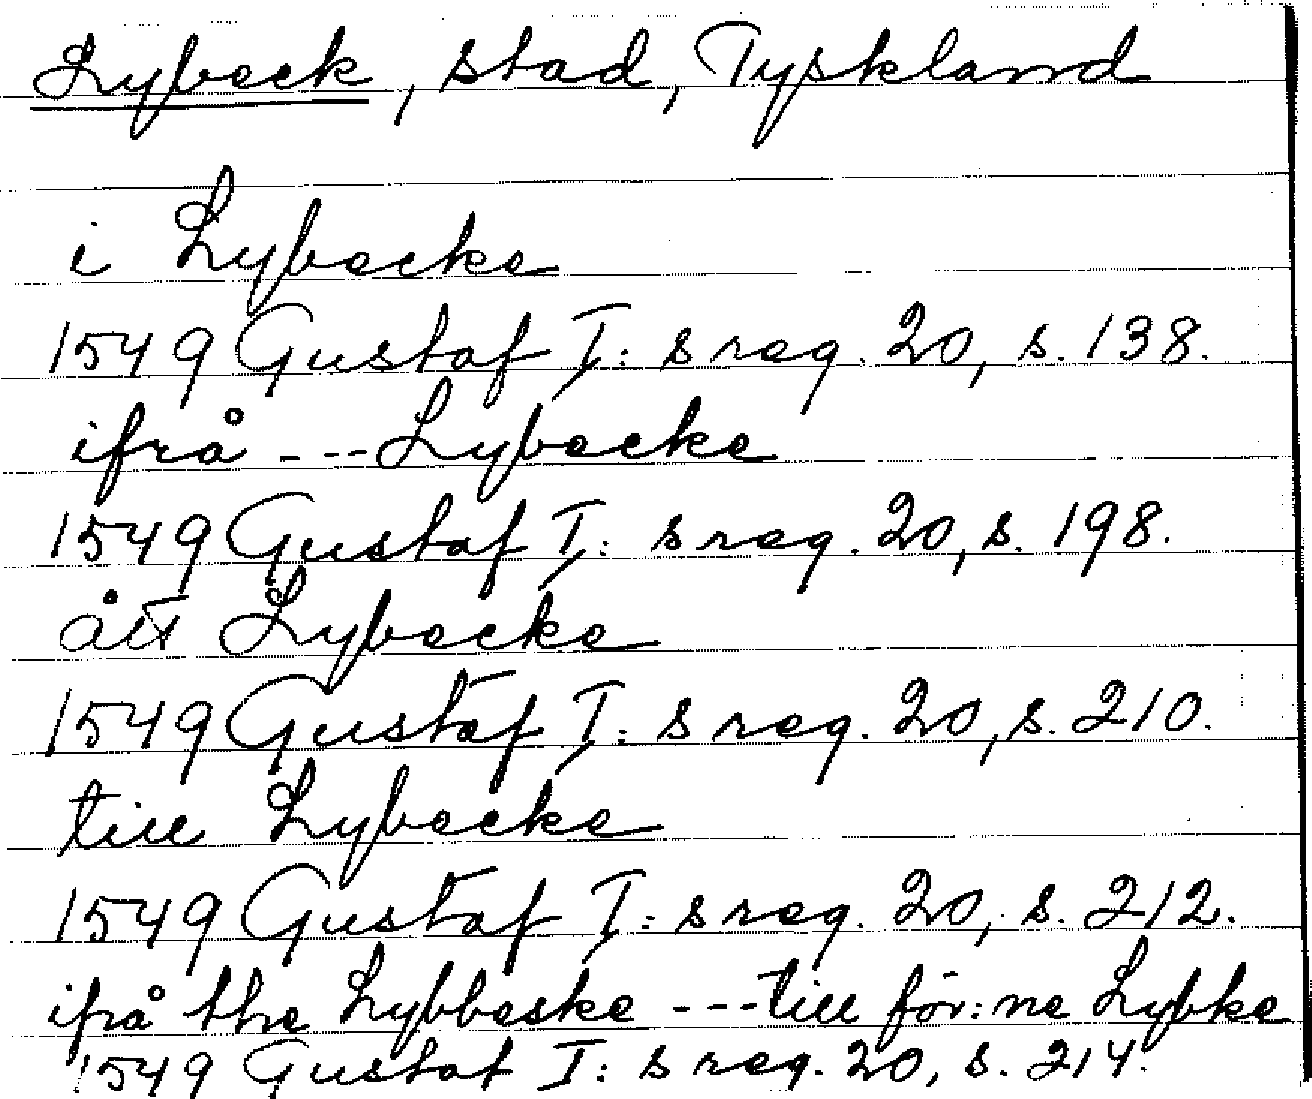 Lybeck, stad, Tyskland
i Lybecke
1549 Gustaf I:s reg. 20, s. 138.
ifrå ---Lybecke
1549 Gustaf I:s reg. 20, s. 198.
ått Lybecke
1549 Gustaf I:s reg. 20, s. 210.
till Lybecke
1549 Gustaf I:s reg. 20, s. 212.
ifrå the Lybbeske ---till för:ne Lybke
1549 Gustaf I:s reg. 20, s. 214.